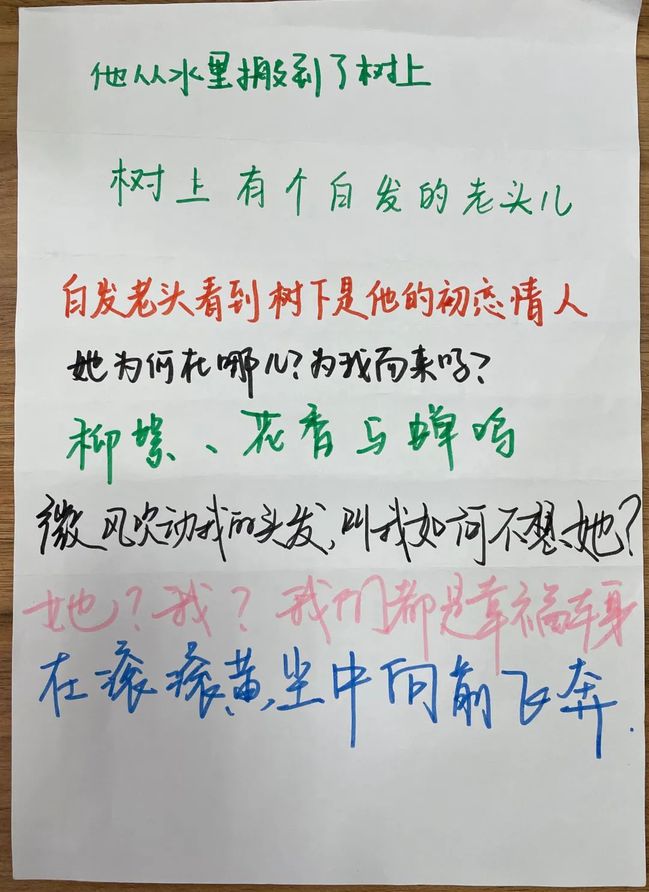 他从水里搬到了树上
树上有个白发的老头儿
白发老头看到树下是他的初恋情人
她为何在哪儿?为我而来吗?
柳絮、花香与蝉鸣
微风吹动我的头发,叫我如何不想她?
她?我?我们都是幸福本身
在滚滚黄尘中向前飞奔.